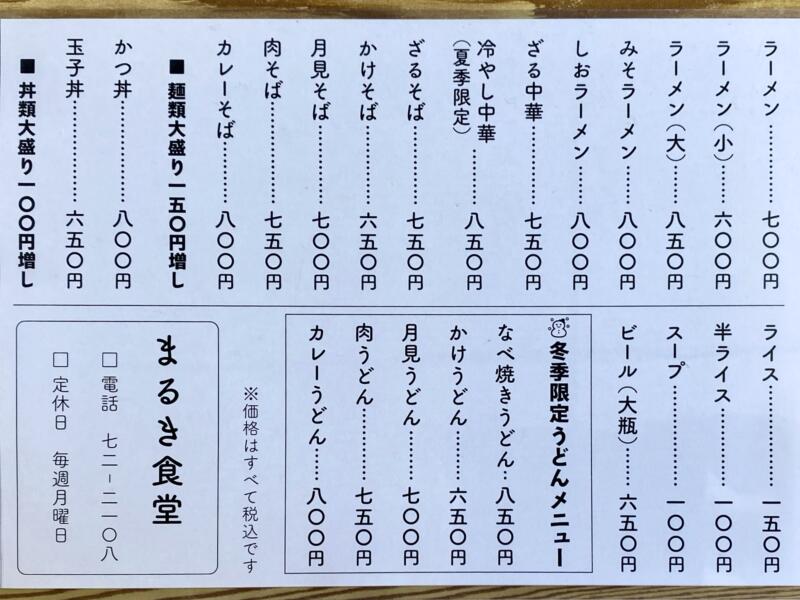 ラーメン…………七〇〇円
ラーメン（小）……六〇〇円
ラーメン（大）……八五〇円
みそラーメン……八〇〇円
しおラーメン……八〇〇円
ざる中華…………七五〇円
冷やし中華………八五〇円
（夏季限定）
ざるそば…………七五〇円
かけそば…………六五〇円
月見そば…………七〇〇円
肉そば……………七五〇円
カレーそば………八〇〇円
■ 麺類大盛り一五〇円増し
かつ丼……………八〇〇円
玉子丼……………六五〇円
■ 丼類大盛り一〇〇円増し
ライス……………一五〇円
半ライス…………一〇〇円
スープ……………一〇〇円
ビール（大瓶）……六五〇円
冬季限定うどんメニュー
なべ焼きうどん‥八五〇円
かけうどん………六五〇円
月見うどん………七〇〇円
肉うどん…………七五〇円
カレーうどん……八〇〇円
※価格はすべて税込です
まるき食堂
□ 電話 七二－二一〇八
□ 定休日 毎週月曜日